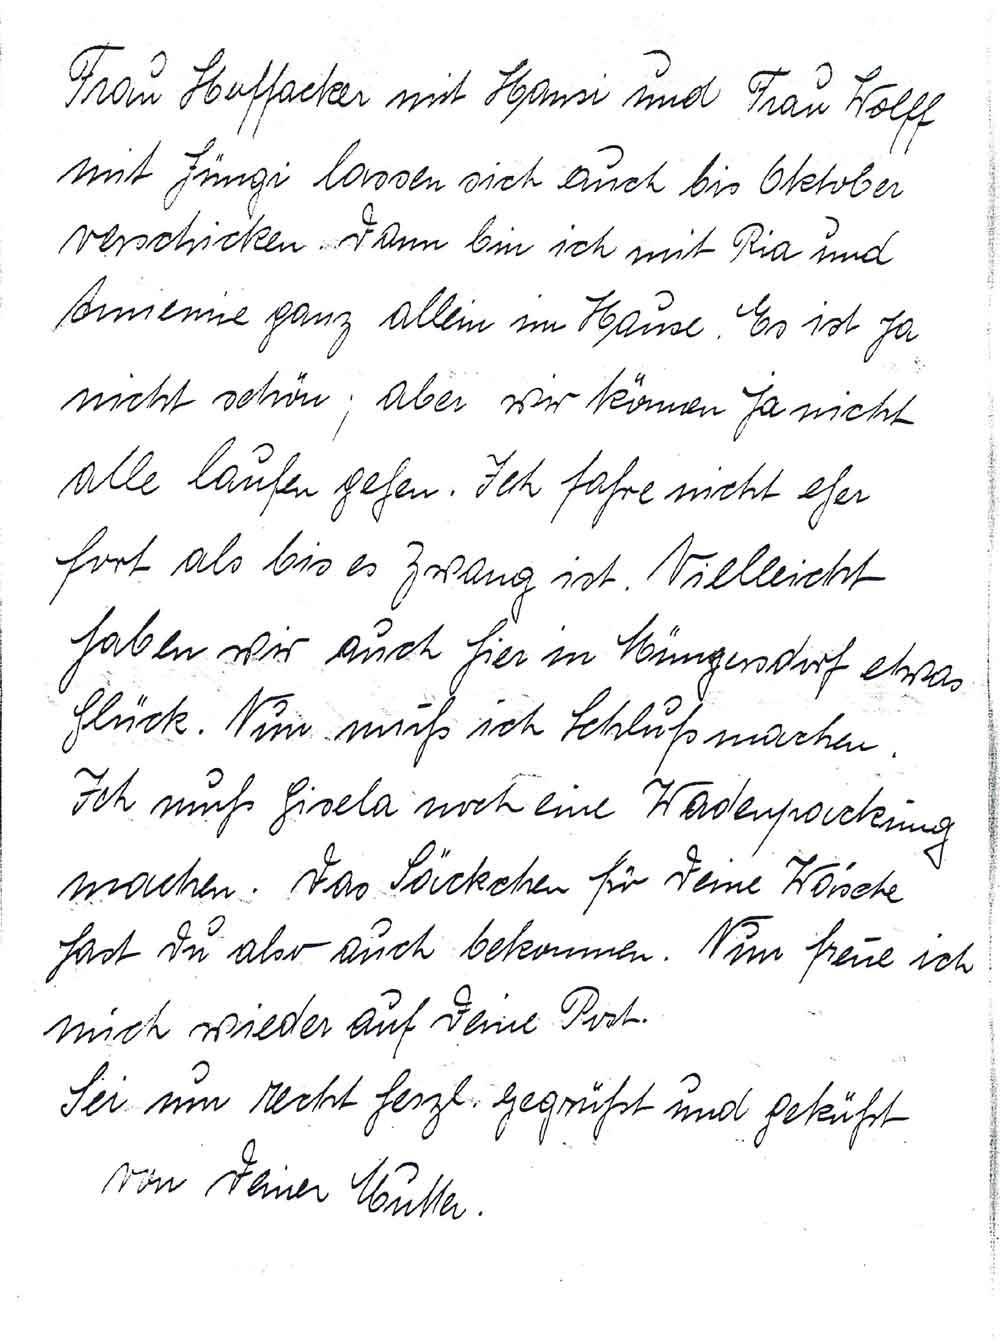 Frau Hoffacker mit Hansi und Frau Wolff
mit Jüngi lassen sich auch bis Oktober
verschicken. Dann bin ich mit Ria und
Annemie ganz allein im Hause. Es ist ja
nicht schön, aber wir können ja nicht
alle laufen gehen. Ich fahre nicht eher
fort als bis es Zwang ist. Vielleicht
haben wir auch hier in Müngersdorf etwas
Glück. Nun muß ich Schluß machen.
Ich muß Gisela noch eine Wadenpackung
machen. Das Säckchen für Deine Wäsche
hast Du also auch bekommen. Nun freue ich
mich wieder auf Deine Post.
Sei nun recht herzl. gegrüßt und geküßt
von Deiner Mutter.